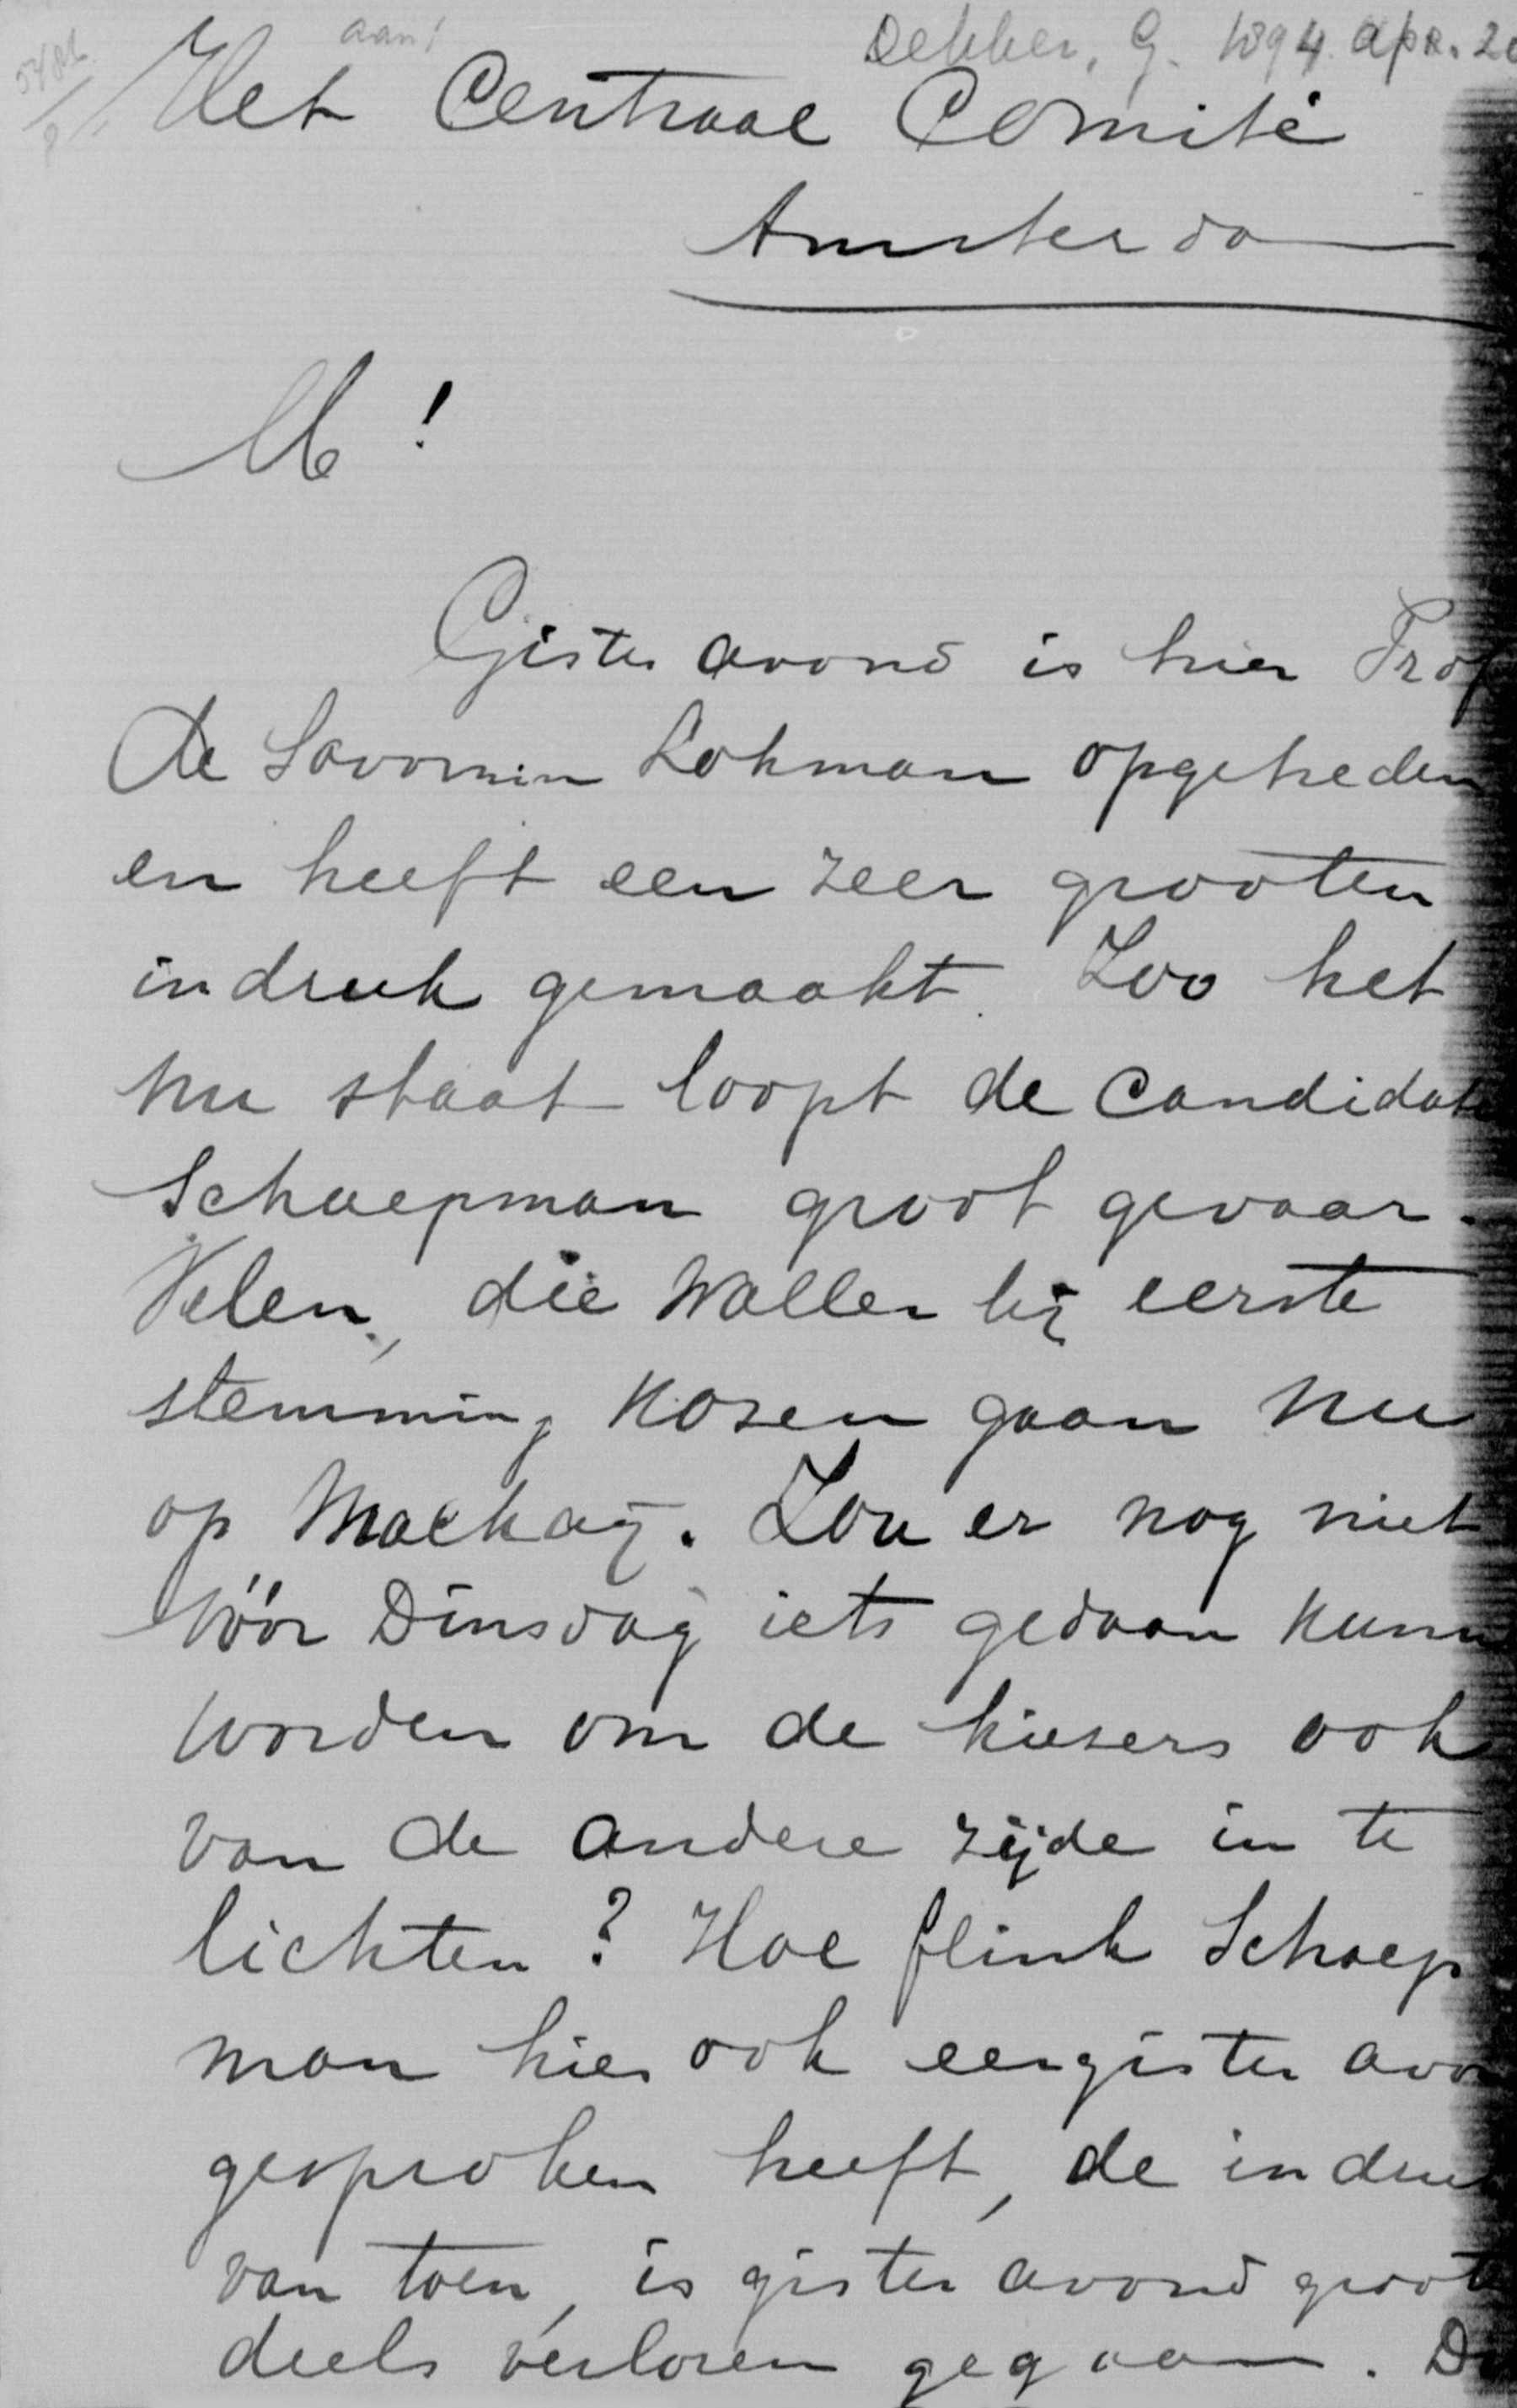 aan!
Dekker, G. 1894 apr. 20
Het Centraal Comité
Amsterdam
M!
Gister avond is hier Prof
de Savornin Lohman opgetreden
en heeft een zeer grooten
indruk gemaakt. Zoo het
nu staat loopt de candidat
Schaepman groot gevaar.
Velen, die Waller bij eerste
stemming kozen gaan nu
op Mackay. Zou er nog niet
vóór Dinsdag iets gedaan kunn
worden om de kiesers ook
van de andere zijde in te
lichten? Hoe flink Schaep
man hier ook eergister avon
gesproken heeft, de indruk
van toen, is gister avond groote
deels verloren gegaan. D